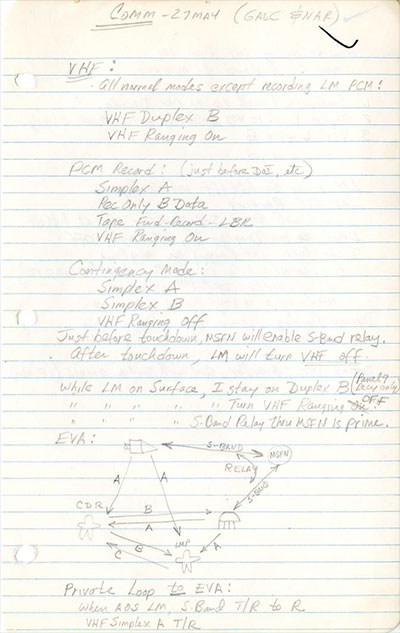 COMM - 27 MAY (GAEC & NAR)
VHF:
All normal modes except recording LM PCM:
VHF Duplex B
VHF Ranging On
PCM Record: (just before DOI, etc)
Simplex A
Rec Only B Data
Tape Fwd-Record-LBR
VHF Ranging On
Contingency Mode:
Simplex A
Simplex B
VHF Ranging Off
Just before touchdown, MSFN will enable S-Band relay.
After touchdown, LM will turn VHF off.
While LM on Surface, I stay on Duplex B (Panel 9 only)
" " " " " " Turn VHF Ranging OFF
" " " " S-Band Relay thru MSFN is prime.
EVA:
S-BAND
MSFN
RELAY
S-BAND
A
A
CDR
B
A
B
C
LMP
A
Private Loop to EVA:
When AOS LM, S-Band T/R to R
VHF Simplex A T/R